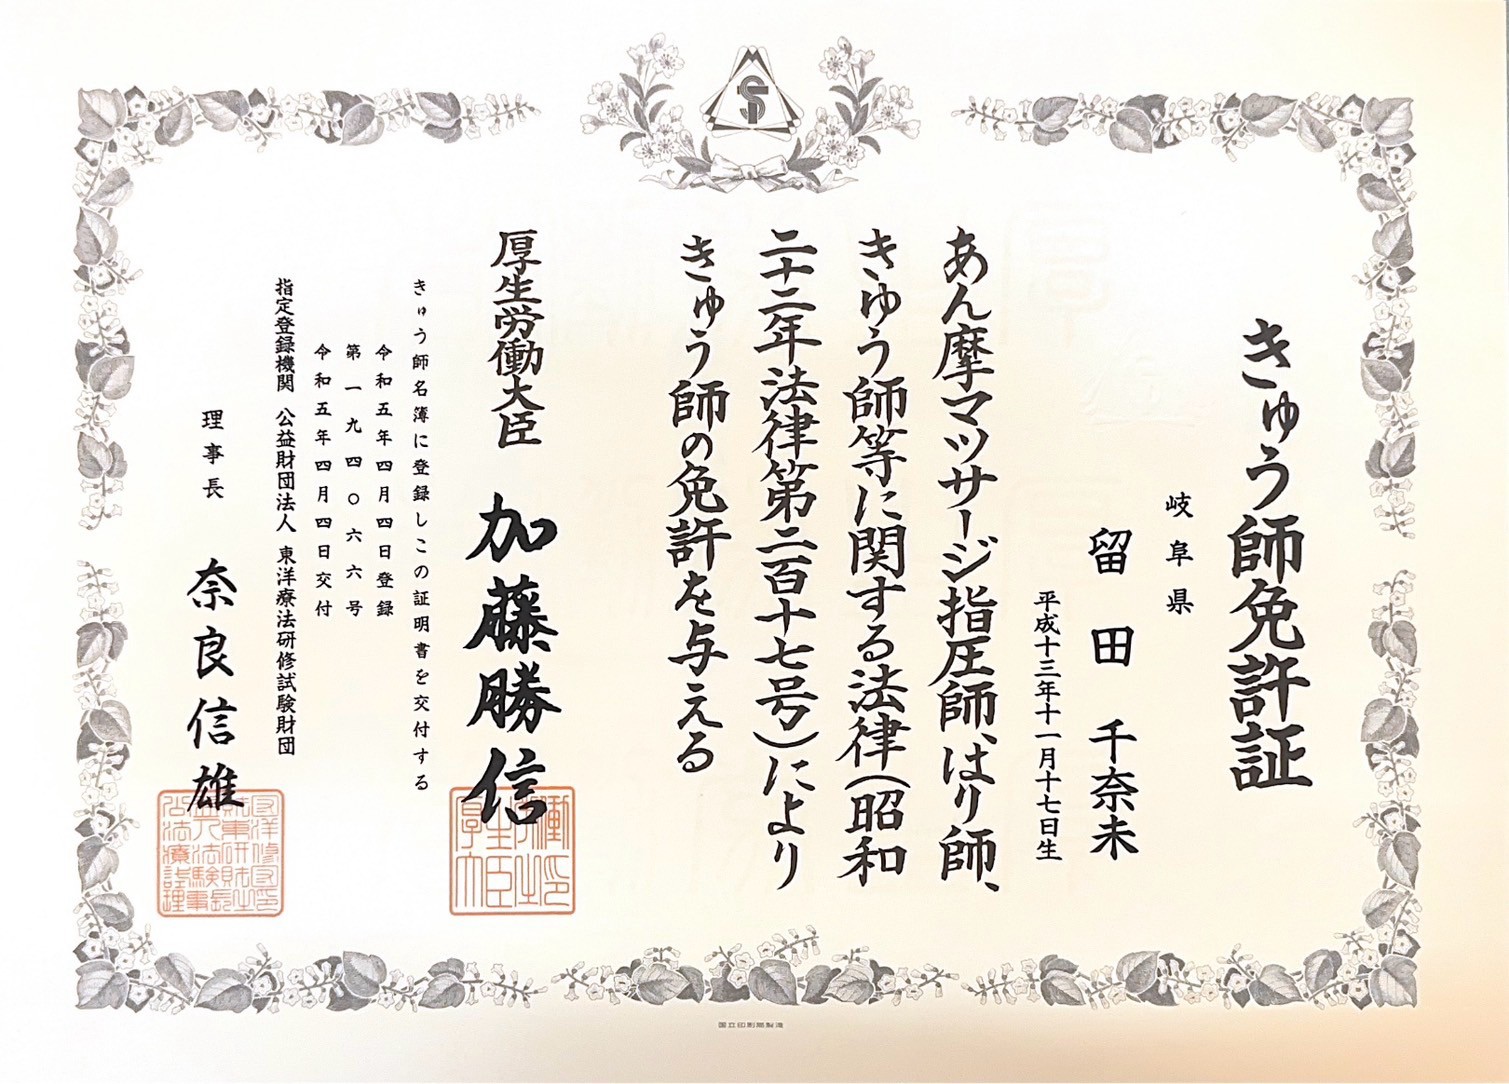 きゅう師免許証
岐阜県
留田千奈未
平成十三年十一月十七日生
あん摩マツサージ指圧師、はり師、
きゆう師等に関する法律(昭和
二十二年法律第二百十七号)により
きゅう師の免許を与える
厚生労働大臣 加藤勝信
きゅう師名簿に登録しこの証明書を交付する
令和五年四月四日登録
第一九四〇六六号
令和五年四月四日交付
指定登録機関 公益財団法人 東洋療法研修試験財団
理事長 奈良信雄
国立印刷局製造